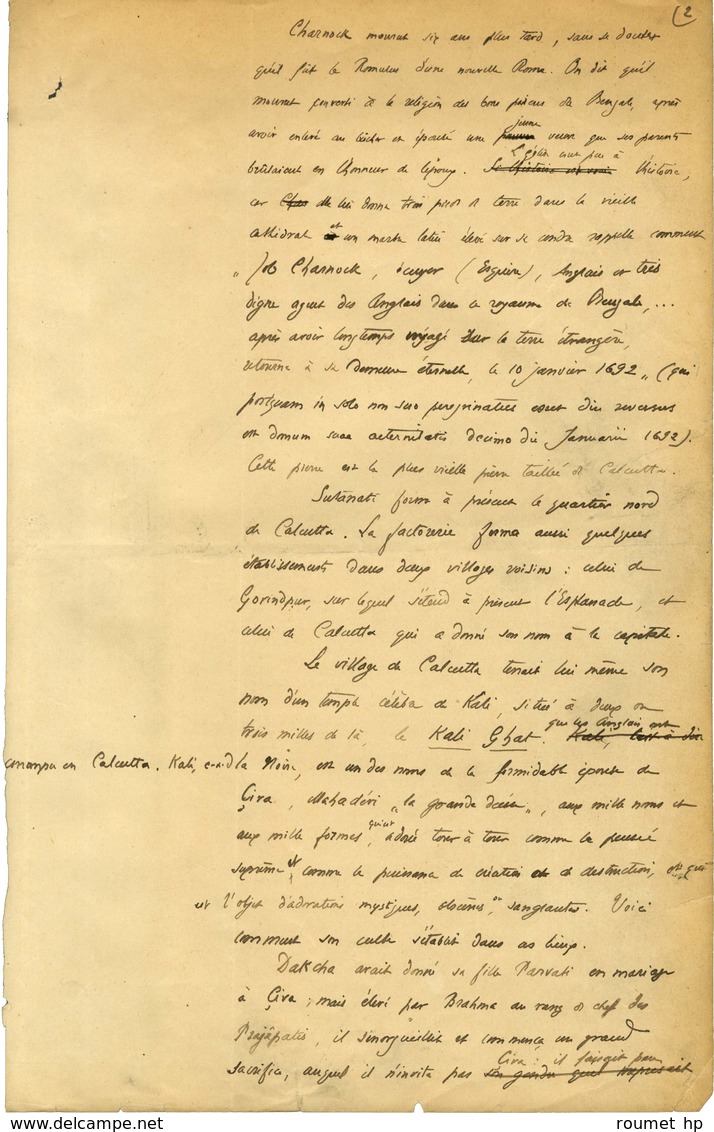 (2
Charnock mourut six ans plus tard, sans se douter
qu'il fût le Romulus d'une nouvelle Rome. On dit qu'il
mourut converti à la religion des bons païens du Bengale, après
avoir enlevé au bûcher et épousé une jeune veuve que ses parents
brûlaient en l'honneur de l'époux. L'église n'eut pas à l'histoire,
car elle lui donna trois pieds de terre dans la vieille
cathédrale et un marbre latin élevé sur sa cendre rappelle comment
„ Job Charnock, écuyer (Esquire), Anglais et très
digne agent des Anglais dans le royaume de Bengale, ...
après avoir longtemps voyagé sur la terre étrangère,
retourna à sa demeure éternelle, le 10 janvier 1692 „ (qui
postquam in solo non suo peregrinatus esset diu reversus
est domum suae aeternitatis decimo die Januarii 1692).
Cette pierre est la plus vieille pierre taillée de Calcutta.
Sutanati forme à présent le quartier nord
de Calcutta. La factorerie forma aussi quelques
établissements dans deux villages voisins : celui de
Govindpur, sur lequel s'étend à présent l'Esplanade, et
celui de Calcutta qui a donné son nom à la capitale.
Le village de Calcutta tenait lui même son
nom d'un temple célèbre de Kali, situé à deux ou
trois milles de là le Kali Ghat. que les Anglais ont
corrompu en Calcutta. Kali, c-à-d la Noire, est un des noms de la formidable épouse de
Çiva, Mahadévi „ la grande déesse „, aux mille noms et
aux mille formes, qui est adorée tour à tour comme la pensée
suprême et comme la puissance de création et de destruction,
et l'objet d'adorations mystiques, obscènes, ou sanglantes. Voici
comment son culte s'établit dans ces lieux.
Dakcha avait donné sa fille Parvati en mariage
à Çiva ; mais élevé par Brahma au rang de chef des
Prajâpatis, il s'enorgueillit et commença un grand
sacrifice, auquel il n'invita pas Çiva : il faisait peu
roumet hp